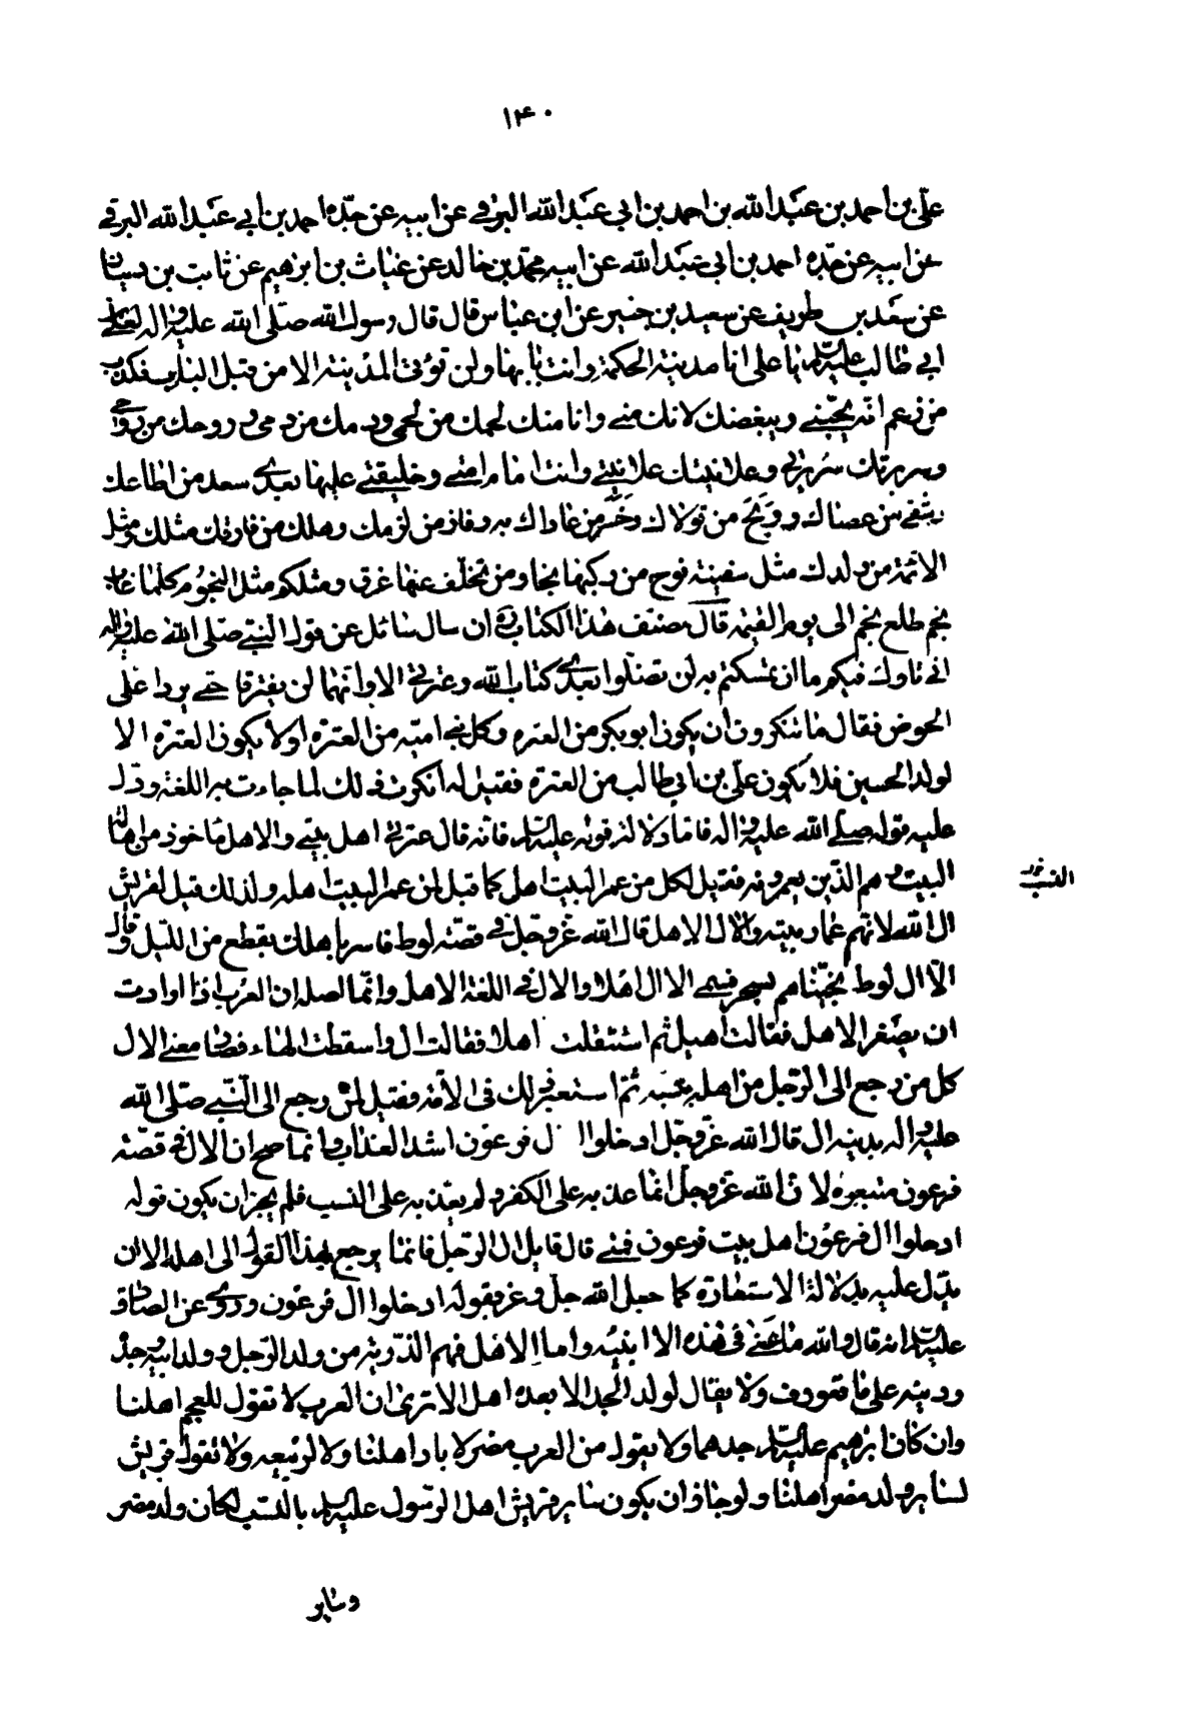 ۱۴۰
علی بن احمد بن عبد الله بن احمد بن ابی عبد الله البرقی عن ابیه عن جده احمد بن ابی عبد الله البرقی
عن ابیه عن جده احمد بن ابی عبد الله عن ابیه محمد بن خالد عن غیاث بن ابرهیم عن ثابت بن دینار
عن سعد بن طریف عن سعید بن جبیر عن ابن عباس قال قال رسول الله صلی الله علیه و اله لعلی بن
ابی طالب علیه السلم یا علی انا مدینة الحکمة وانت بابها ولن تؤتی المدینة الا من قبل الباب فکذب
من زعم انه یحبنی ویبغضک لانک منی وانا منک لحمک من لحمی ودمک من دمی وروحک من روحی
وسریرتک سریرتی وعلانیتک علانیتی وانت امام امتی وخلیفتی علیها بعدی سعد من اطاعک
وشقی من عصاک وربح من تولاک وخسر من عاداک وفاز من لزمک وهلک من فارقک مثلک ومثل
الائمة من ولدک مثل سفینة نوح من رکبها نجا ومن تخلف عنها غرق ومثلکم مثل النجوم کلما غاب
نجم طلع نجم الی یوم القیمة قال مصنف هذا الکتاب ره ان سال سائل عن قول النبی صلی الله علیه واله
انی تارک فیکم ما ان تمسکتم به لن تضلوا بعدی کتاب الله وعترتی الا وانهما لن یفترقا حتی یردا علی
الحوض فقال ما تنکرون ان یکون ابو بکر من العترة وکل بنی امیه من العترة او لا یکون العترة الا
لولد الحسین فلا یکون علی بن ابی طالب من العترة فقیل له انکرت ذلک لما جاءت به اللغة ودل
علیه قوله صلی الله علیه واله فاما دلالة قوله علیه السلم فانه قال عترتی اهل بیتی والاهل ماخوذ من اهالة
البیت وهم الذین یعمرونه فقیل لکل من عمر البیت اهل کما قیل لمن عمر البیت اهله ولذلک قیل لقریش
ال الله لانهم عمار بیته والال الاهل قال الله عز وجل فی قصة لوط فاسر باهلک بقطع من اللیل وقال
الا ال لوط نجیناهم بسحر فسمی الال اهلا والال فی اللغة الاهل وانما اصله ان العرب اذا ارادت
ان یصغر الاهل فقالت اهیل ثم استثقلت اهلا فقالت ال واسقطت الهاء فصار معنی الال
کل من رجع الی الرجل من اهله بنسبه ثم استعیر ذلک فی الامة فقیل لمن رجع الی النبی صلی الله
علیه واله بدینه ال قال الله عز وجل ادخلوا ال فرعون اشد العذاب وانما صح ان الال فی قصة
فرعون متبعوه لان الله عز وجل انما عذبه علی الکفر ولم یعذبه علی النسب فلم یجز ان یکون قوله
ادخلوا ال فرعون اهل بیت فرعون فمتی قال قایل ال الرجل فانما یرجع بهذا القول الی اهله الا ان
یدل علیه بدلالة الاستعارة کما جعل الله جل وعز بقوله ادخلوا ال فرعون وروی عن الصادق
علیه السلم انه قال والله ما عنی فی هذه الا ابنیه واما الاهل فهم الذریة من ولد الرجل وولد ابیه وجده
ودینه علی ما تعورف ولا یقال لولد الجد الا بعد اهل الا تری ان العرب لا تقول للعجم اهلنا
وان کان ابرهیم علیه السلم جدهما ولا یقول من العرب مضر لایاد اهلنا ولا لربیعه ولا تقول قریش
لسایر ولد مضر اهلنا ولو جاز ان یکون سایر قریش اهل الرسول علیه السلم بالنسب لکان ولد مضر
وسایر